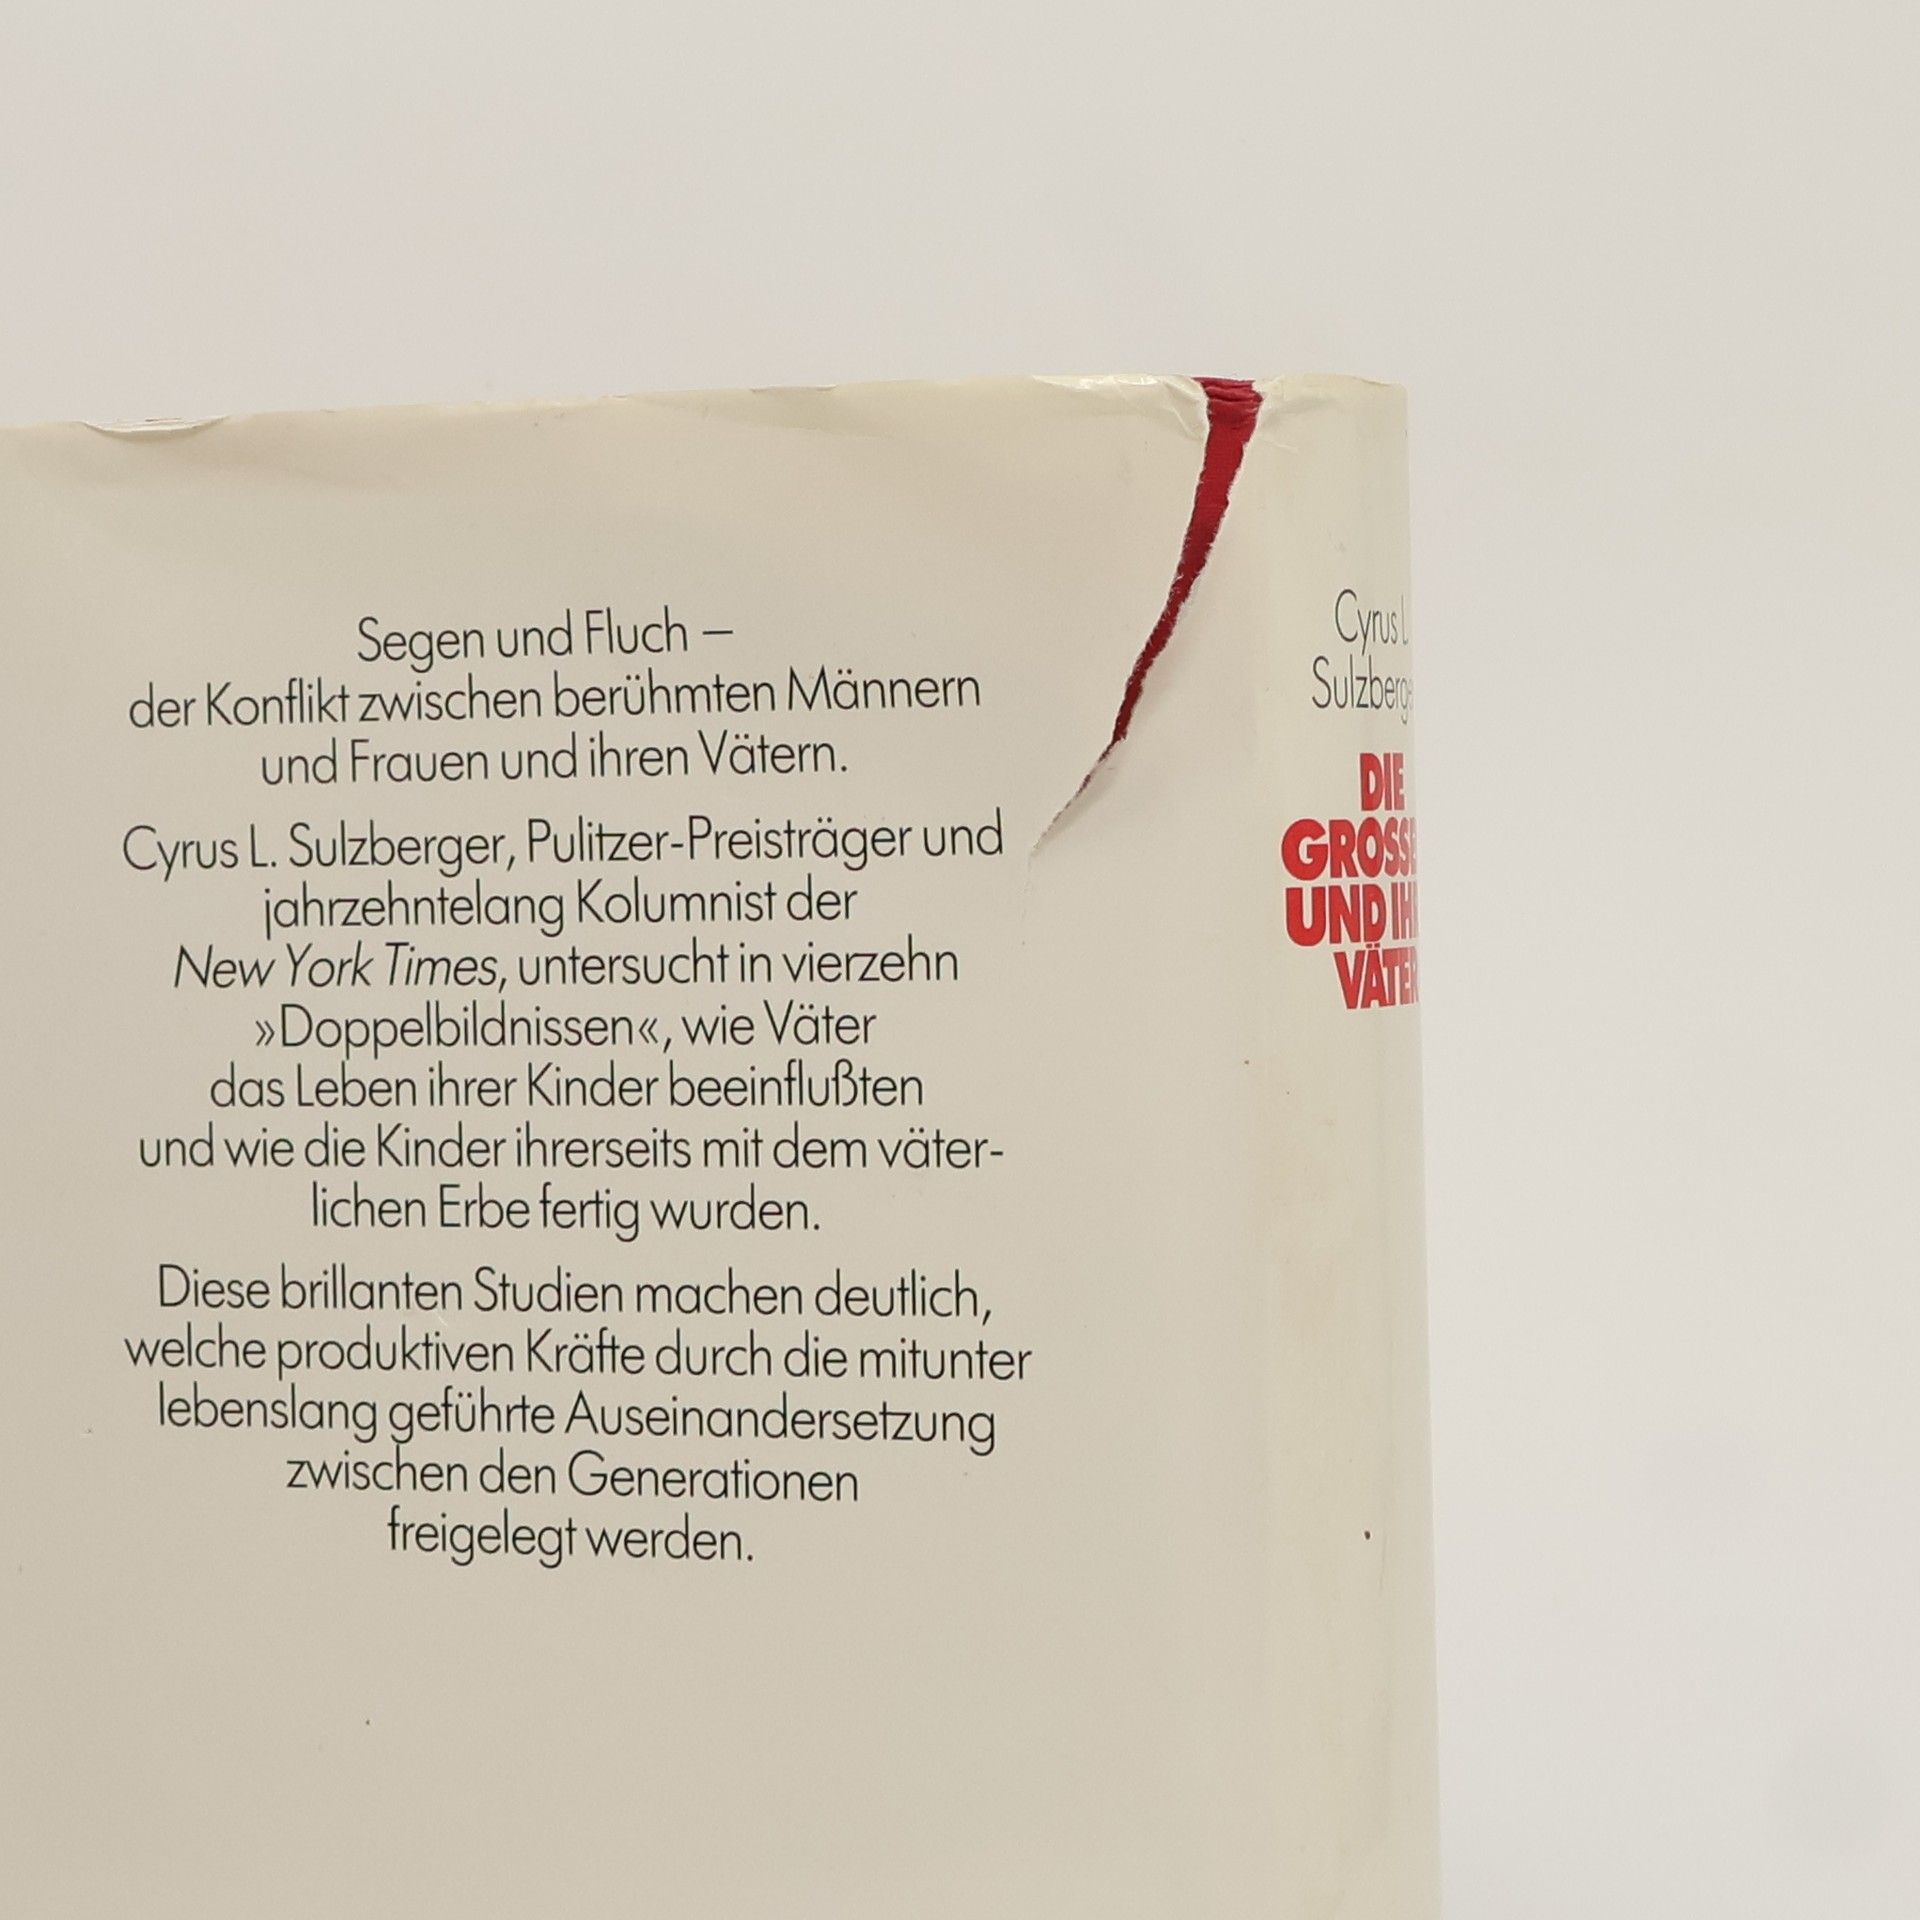 Segen und Fluch –
der Konflikt zwischen berühmten Männern
und Frauen und ihren Vätern.
Cyrus L. Sulzberger, Pulitzer-Preisträger und
jahrzehntelang Kolumnist der
New York Times, untersucht in vierzehn
»Doppelbildnissen«, wie Väter
das Leben ihrer Kinder beeinflußten
und wie die Kinder ihrerseits mit dem väter-
lichen Erbe fertig wurden.
Diese brillanten Studien machen deutlich,
welche produktiven Kräfte durch die mitunter
lebenslang geführte Auseinandersetzung
zwischen den Generationen
freigelegt werden.
Cyrus L
Sulzberge
DIE
GROSSE
UND IH
VÄTER